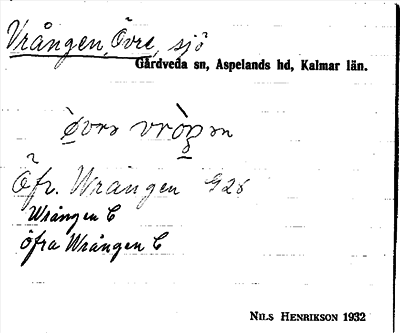 Vrången, Övre, sjö
Gårdveda sn, Aspelands hd, Kalmar län.
Öfr. Wrången
Wrången C
öfra Wrången C
NILS HENRIKSON 1932